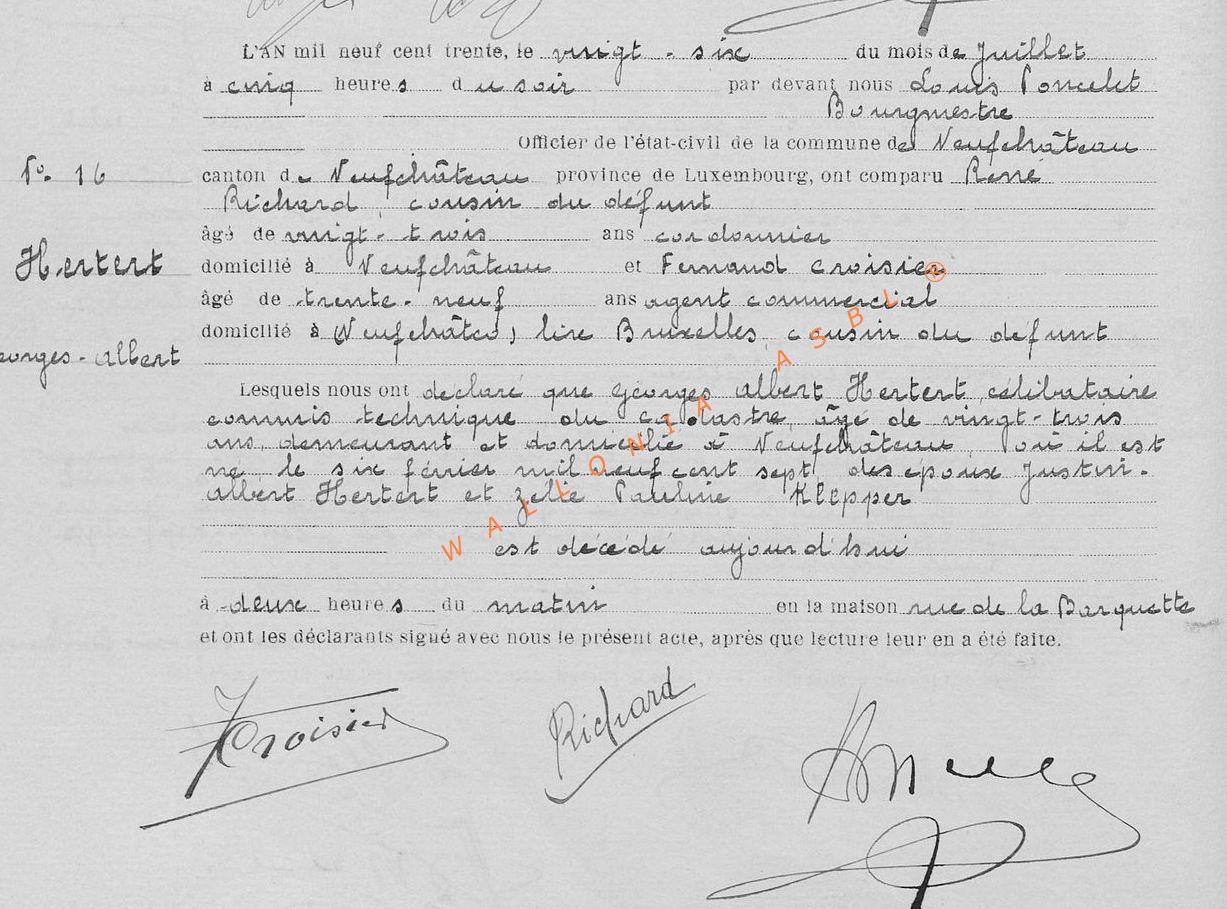 L'AN mil neuf cent trente, le vingt-six du mois de Juillet
à cinq heures du soir par devant nous Louis Poncelet
Bourgmestre
Officier de l'état-civil de la commune de Neufchâteau
N° 16
canton de Neufchâteau province de Luxembourg, ont comparu René
Richard, cousin du défunt
âgé de vingt-trois ans cordonnier
Hertert
domicilié à Neufchâteau et Fernand Croisier
âgé de trente-neuf ans agent commercial
domicilié à (Neufchâteau) lire Bruxelles, cousin du défunt
eorges-Albert
Lesquels nous ont déclaré que Georges Albert Hertert, célibataire
commis technique du cadastre, âgé de vingt-trois
ans, demeurant et domicilié à Neufchâteau, où il est
né le six février mil neuf cent sept, des époux Justin-
Albert Hertert et Zélie Pauline Klepper
est décédé aujourd'hui
à deux heures du matin en la maison rue de la Barquette
et ont les déclarants signé avec nous le présent acte, après que lecture leur en a été faite.
WALLONIA ASBL ®
FCroisier Richard